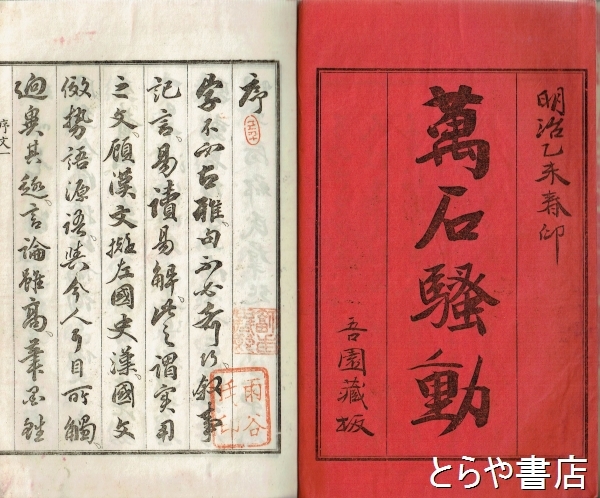 明治乙未春印
萬石騷動
吾園藏板
序
字不必古雅。句不必奇巧。叙事
記言。易讀易解。此之謂實用
之文。顧漢文擬左國史漢。國文
倣勢語源語。與今人耳目所觸
迥異其趣。言論雖高。筆墨雖
序文一
雨谷
とらや書店